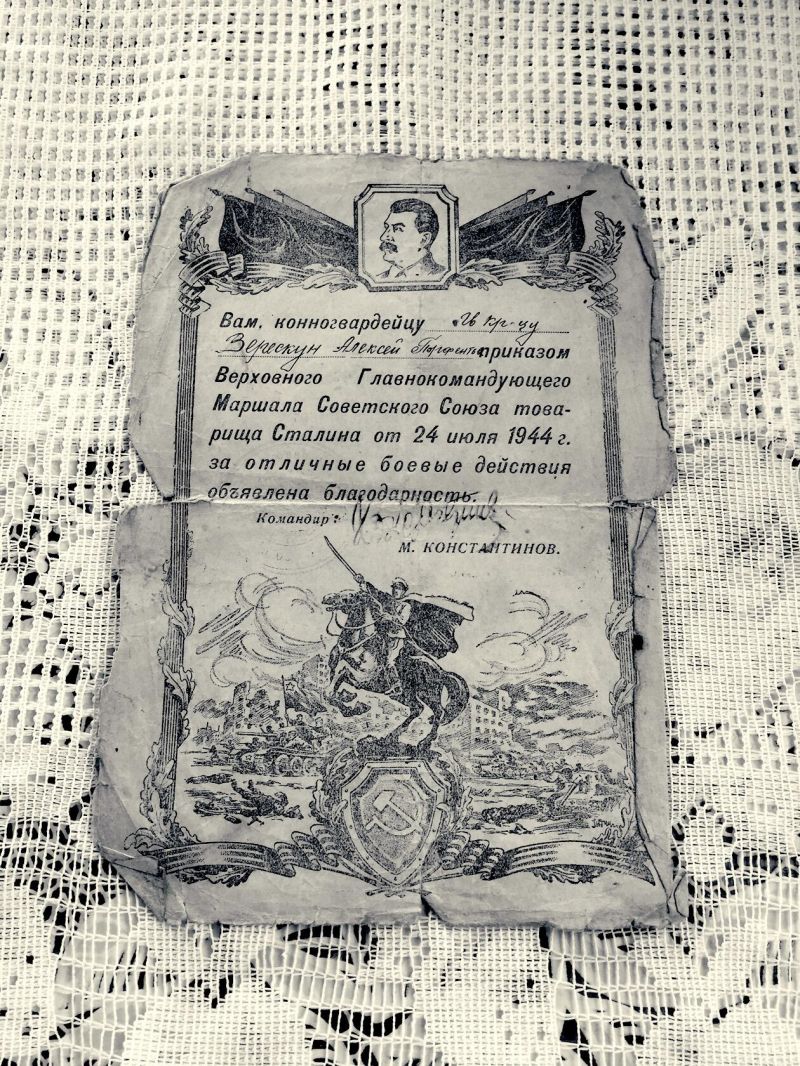 Вам, конногвардейцу гв кр-цу
Зерескун Алексей приказом
Верховного Главнокомандующего
Маршала Советского Союза това-
рища Сталина от 24 июля 1944 г.
за отличные боевые действия
объявлена благодарность.
Командир:
М. КОНСТАНТИНОВ.